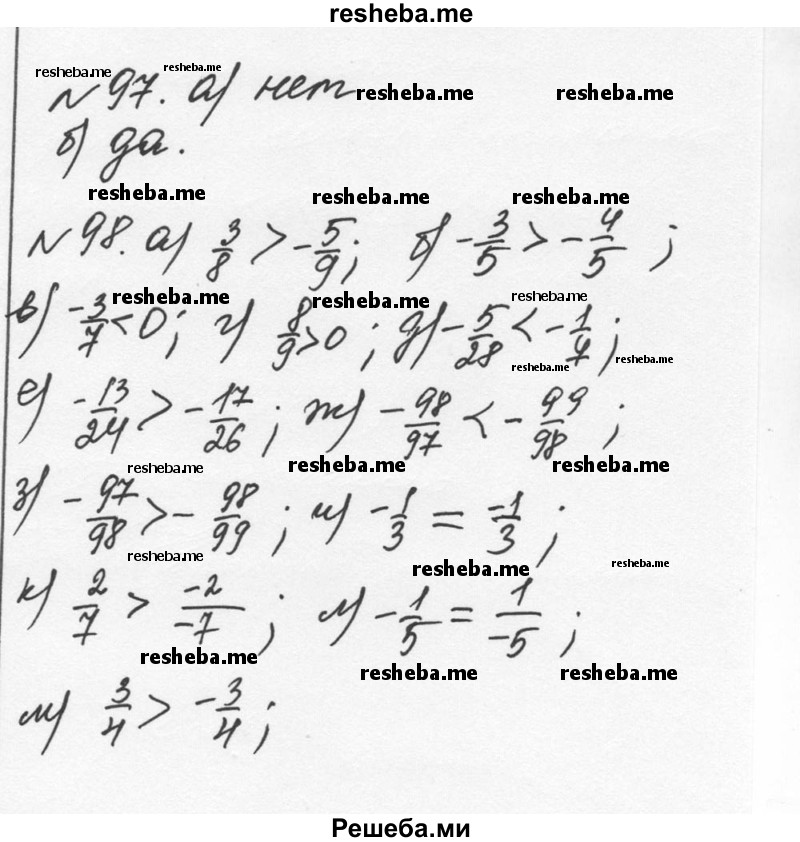 resheba.me
resheba.me resheba.me
№97. а) нет resheba.me resheba.me
б) да.
resheba.me resheba.me resheba.me
№98. а) 3/8 > -5/9; б) -3/5 > -4/5 ;
resheba.me resheba.me resheba.me
в) -3/7 < 0; г) 8/9 > 0 ; д) -5/28 < -1/7 ;
resheba.me resheba.me
е) -13/24 > -17/26 ; ж) -98/97 < -99/98 ;
resheba.me resheba.me resheba.me
з) -97/98 > -98/99 ; и) -1/3 = -1/3 ;
resheba.me resheba.me resheba.me
к) 2/7 > -2/-7 ; л) -1/5 = 1/-5 ;
resheba.me resheba.me resheba.me
м) 3/4 > -3/4 ;
Решеба.ми